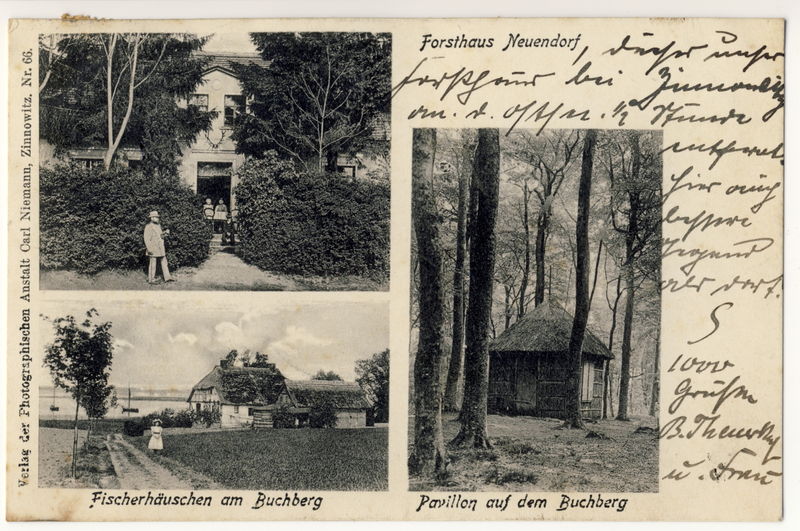 Verlag der Photographischen Anstalt Carl Niemann, Zinnowitz. Nr. 66.
Forsthaus Neuendorf
, dieser unser
Forsthaus bei Zinnowitz
an. d. Ostsee. 1/2 Stunde
entfernt.
hier auch
bessere
Gegend
als dort.
1000
Grüßen
u. Frau
Fischerhäuschen am Buchberg
Pavillon auf dem Buchberg